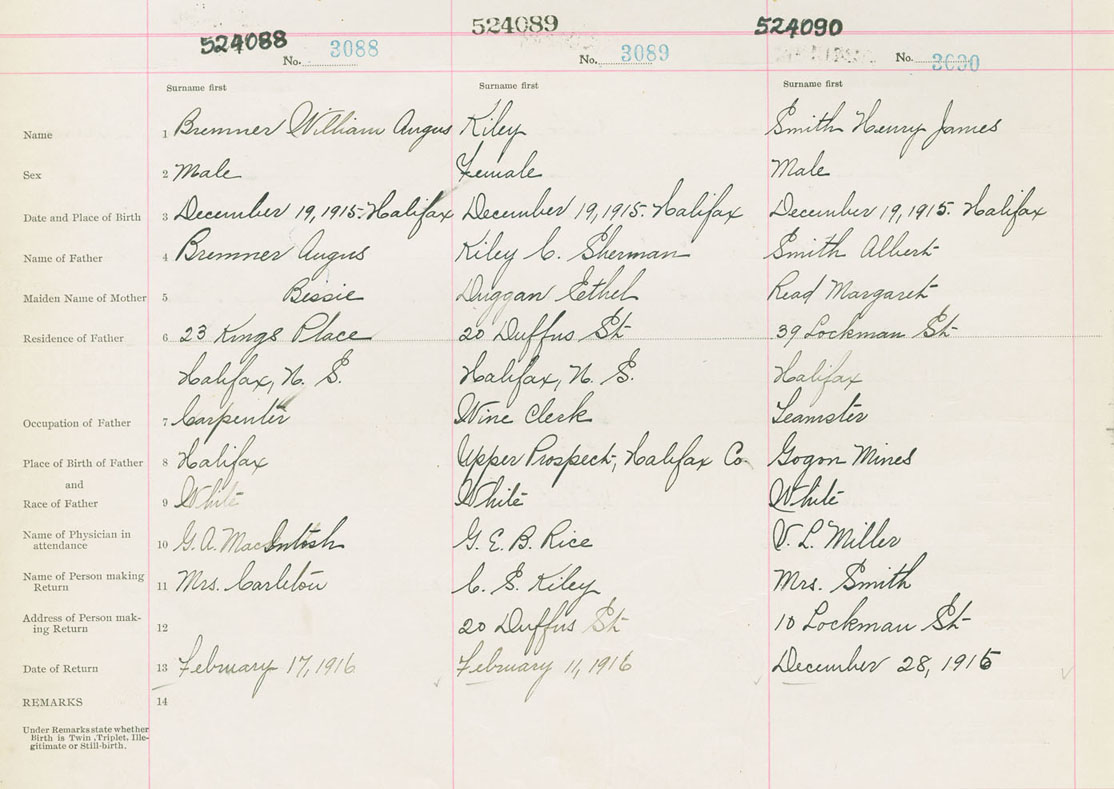 524088 524089 524090
No. 3088 No. 3089 No. 3090
Surname first Surname first Surname first
Name 1 Bremner William Angus Kiley Smith Henry James
Sex 2 Male Female Male
Date and Place of Birth 3 December 19, 1915. Halifax December 19, 1915. Halifax December 19, 1915. Halifax
Name of Father 4 Bremner Angus Kiley C. Sherman Smith Albert
Maiden Name of Mother 5 Bessie Duggan Ethel Read Margaret
Residence of Father 6 23 Kings Place 20 Duffus St. 39 Lockman St.
Halifax, N. S. Halifax, N. S. Halifax
Occupation of Father 7 Carpenter Wine Clerk Teamster
Place of Birth of Father 8 Halifax Upper Prospect, Halifax Co. Gogon Mines
and
Race of Father 9 White White White
Name of Physician in
attendance 10 G. A. MacIntosh G. E. B. Rice V. L. Miller
Name of Person making
Return 11 Mrs. Carleton C. S. Kiley Mrs. Smith
Address of Person mak-
ing Return 12 20 Duffus St. 10 Lockman St.
Date of Return 13 February 17, 1916 February 11, 1916 December 28, 1915
REMARKS 14
Under Remarks state whether
Birth is Twin, Triplet, Ille-
gitimate or Still-birth.